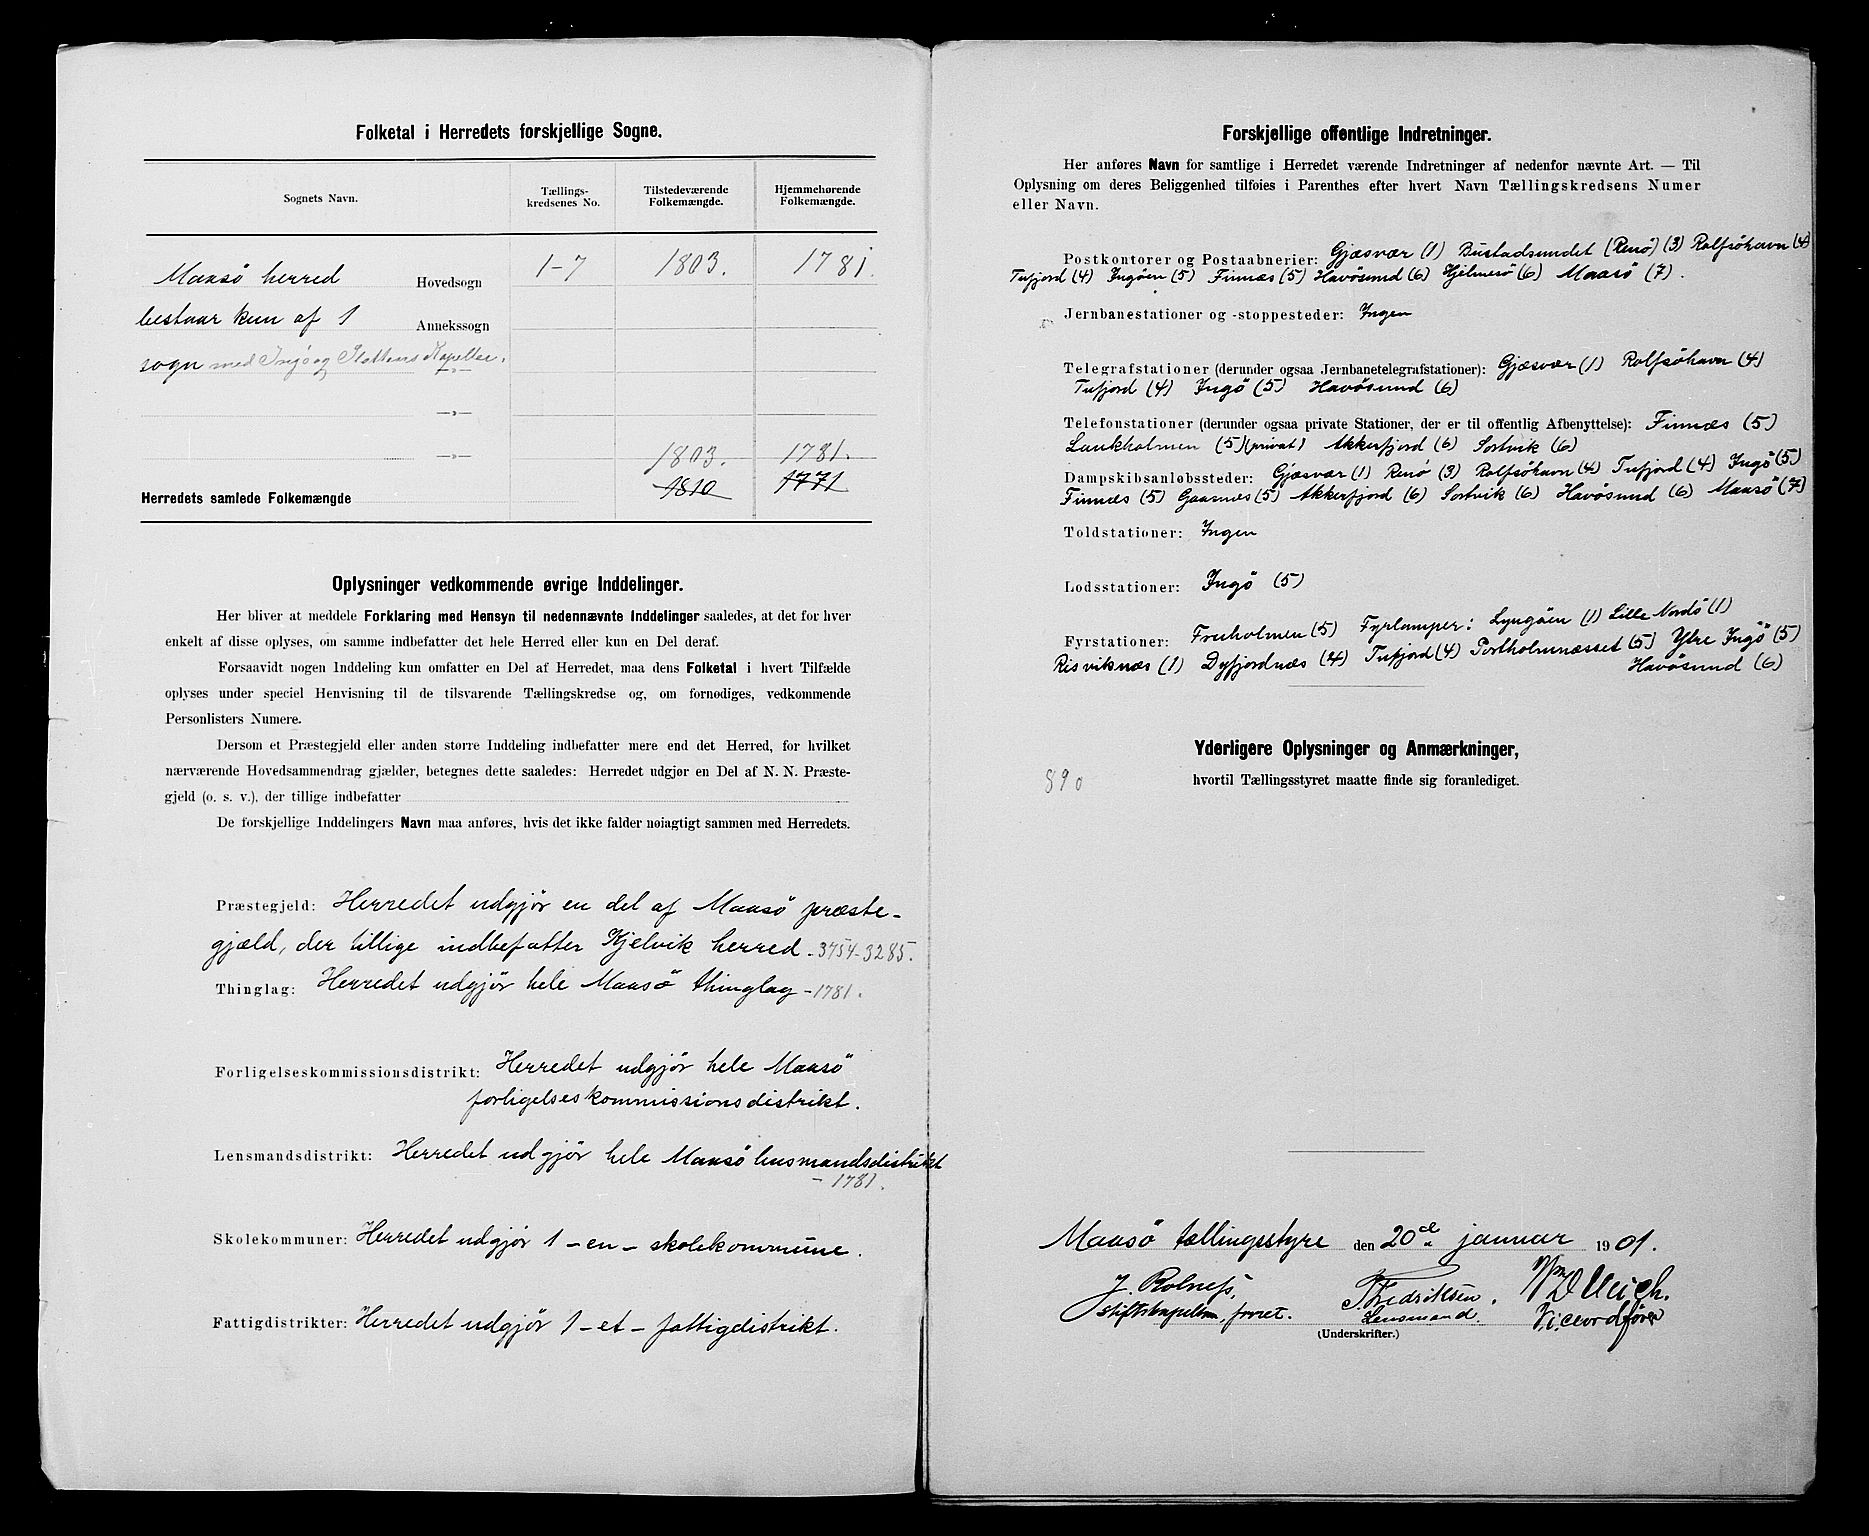 Folketal i Herredets forskjellige Sogne.
Sognets Navn. Tællings-kredsenes No. Tilstedeværende Folkemængde. Hjemmehørende Folkemængde.
Maasö herred Hovedsogn 1-7 1803. 1781.
bestaar kun af 1 Annekssogn
sogn med Ingö og Slottens Kapeller. —„—
—„—
—„— 1803. 1781.
Herredets samlede Folkemængde 1810 1771
Oplysninger vedkommende øvrige Inddelinger.
Her bliver at meddele Forklaring med Hensyn til nedennævnte Inddelinger saaledes, at det for hver
enkelt af disse oplyses, om samme indbefatter det hele Herred eller kun en Del deraf.
Forsaavidt nogen Inddeling kun omfatter en Del af Herredet, maa dens Folketal i hvert Tilfælde
oplyses under speciel Henvisning til de tilsvarende Tællingskredse og, om fornødiges, vedkommende
Personlisters Numere.
Dersom et Præstegjeld eller anden større Inddeling indbefatter mere end det Herred, for hvilket
nærværende Hovedsammendrag gjælder, betegnes dette saaledes: Herredet udgjør en Del af N. N. Præste-
gjeld (o. s. v.), der tillige indbefatter
De forskjellige Inddelingers Navn maa anføres, hvis det ikke falder nøiagtigt sammen med Herredets.
Præstegjeld: Herredet udgjør en del af Maasö præste-
gjæld, der tillige indbefatter Kjelvik herred - 3754-3285.
Thinglag: Herredet udgjør hele Maasö thinglag - 1781.
Forligelseskommissionsdistrikt: Herredet udgjør hele Maasö
forligelseskommissionsdistrikt.
Lensmandsdistrikt: Herredet udgjør hele Maasö lensmandsdistrikt
- 1781.
Skolekommuner: Herredet udgjør 1 - en - skolekommune.
Fattigdistrikter: Herredet udgjør 1 - et - fattigdistrikt.
Forskjellige offentlige Indretninger.
Her anføres Navn for samtlige i Herredet værende Indretninger af nedenfor nævnte Art. — Til
Oplysning om deres Beliggenhed tilføies i Parenthes efter hvert Navn Tællingskredsens Numer
eller Navn.
Postkontorer og Postaabnerier: Gjæsvær (1) Bustadsundet (Renö) (3) Rolfsöhavn (4)
Tufjord (4) Ingöen (5) Finnæs (5) Havösund (6) Hjelmesö (6) Maasö (7).
Jernbanestationer og -stoppesteder: Ingen
Telegrafstationer (derunder ogsaa Jernbanetelegrafstationer): Gjæsvær (1) Rolfsöhavn (4)
Tufjord (4) Ingö (5) Havösund (6)
Telefonstationer (derunder ogsaa private Stationer, der er til offentlig Afbenyttelse): Finnæs (5)
Lankholmen (5) (privat) Akkerfjord (6) Sortvik (6)
Dampskibsanløbssteder: Gjæsvær (1) Renö (3) Rolfsöhavn (4) Tufjord (4) Ingö (5)
Finnæs (5) Gaasnæs (5) Akkerfjord (6) Sortvik (6) Havösund (6) Maasö (7)
Toldstationer: Ingen
Lodsstationer: Ingö (5)
Fyrstationer: Fruholmen (5) Fyrlamper: Lyngöen (1) Lille Nordö (1)
Risviknæs (1) Dyfjordnæs (4) Tufjord (4) Portholmnæsset (5) Ytre Ingö (5)
Havösund (6)
Yderligere Oplysninger og Anmærkninger,
hvortil Tællingsstyret maatte finde sig foranlediget.
890
Maasö tællingsstyre den 20de januar 1901.
J. Rolness, Fredriksen. Ullrich.
stiftskapellan, forret. Lensmand. Viceordfører
(Underskrifter.)